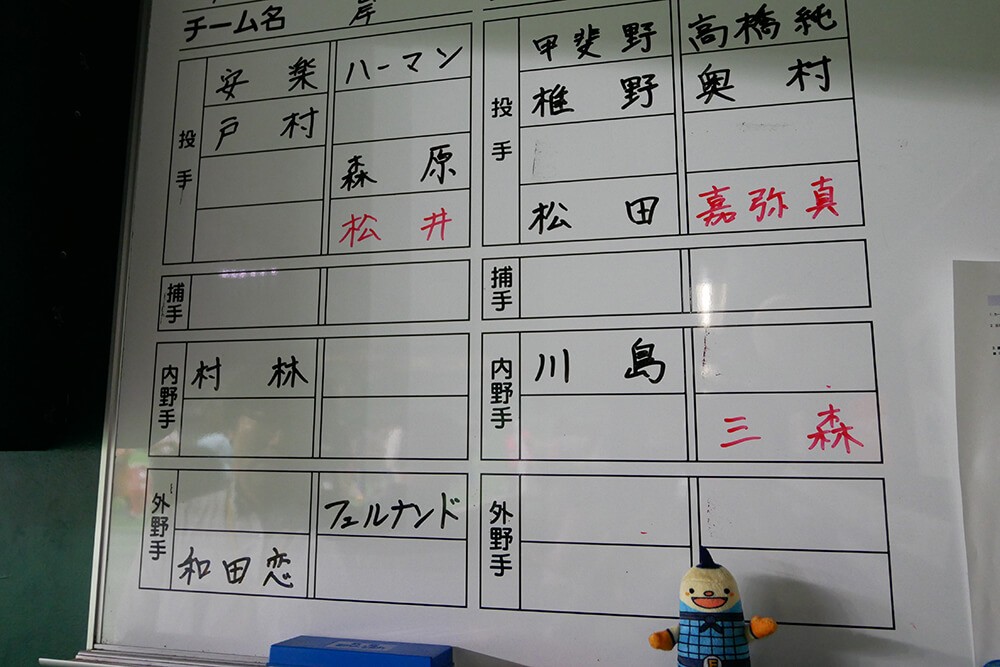 チーム名 岸
投手
安楽 ハーマン
戸村
森原
松井
捕手
内野手
村林
外野手
フェルナンド
和田恋
投手
甲斐野 高橋純
椎野 奥村
松田 嘉弥真
捕手
内野手
川島
三森
外野手